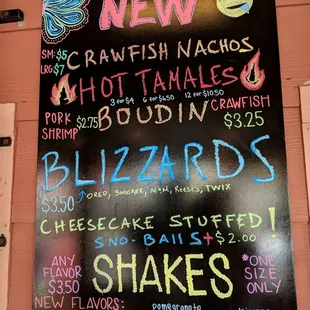 NEW
SM: $5 CRAWFISH NACHOS
LRG: $7
HOT TAMALES
3 for $4 6 for $6.50 12 for $10.50
PORK $2.75 BOUDIN CRAWFISH
SHRIMP $3.25
BLIZZARDS
$3.50 OREO, SNICKER, M&M, REESE'S, TWIX
CHEESECAKE STUFFED!
SNO-BALLS + $2.00
ANY FLAVOR $3.50 SHAKES *ONE SIZE ONLY
NEW FLAVORS: pomegranate